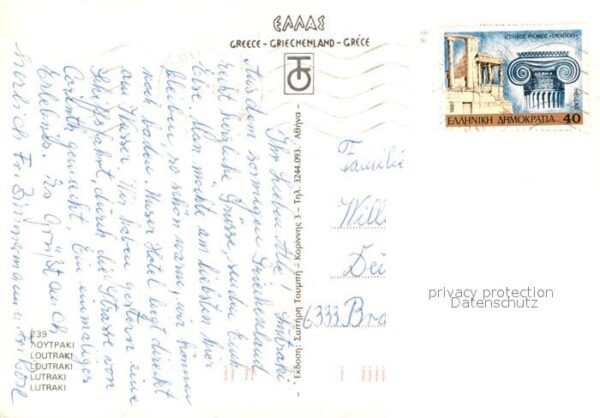 ΕΛΛΑΣ
GREECE - GRIECHENLAND - GRÈCE
ΙΩΝΙΚΟΣ ΡΥΘΜΟΣ "ΕΡΕΧΘΕΙΟ"
1987
HELLAS
ΕΛΛΗΝΙΚΗ ΔΗΜΟΚΡΑΤΙΑ 40
Ihr Lieben Alle! Lutraki
Aus dem sonnigen Griechenland
recht herzliche Grüsse, senden Euch
Man möchte am liebsten hier
bleiben, so schön warm, wir können
noch baden. Unser Hotel liegt direkt
am Wasser. Wir haben gestern eine
Schiffsfahrt durch die Strasse von
Corinth gemacht, Ein einmaliges
Erlebnis. Es grüßt auch
herzlich Fr.
Έκδοση: Σωτήρη Τουμπή - Καρίννης 3 - Τηλ. 3244.093. Αθήνα
Familie
Will
Dei
6333 Bra
privacy protection
Datenschutz
239
ΛΟΥΤΡΑΚΙ
LOUTRAKI
LOUTRAKI
LUTRAKI
LUTRAKI